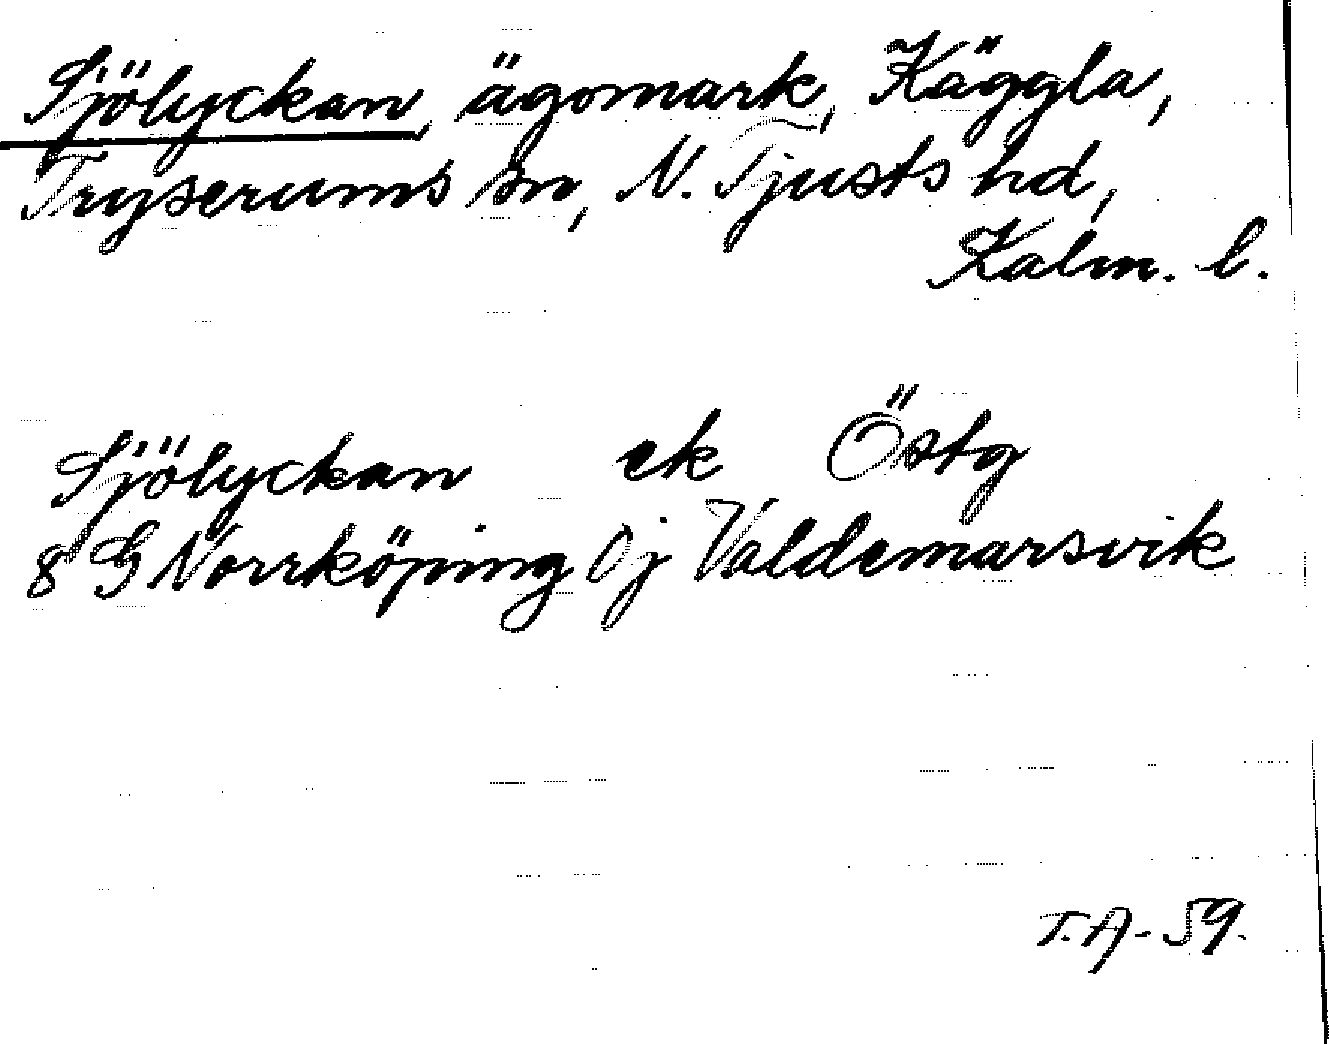 Sjölyckan, ägomark, Käggla,
Tryserums sn, N. Tjusts hd,
Kalm. l.
Sjölyckan ek Östg
8 G Norrköping Öj Valdemarsvik
T.A-59.